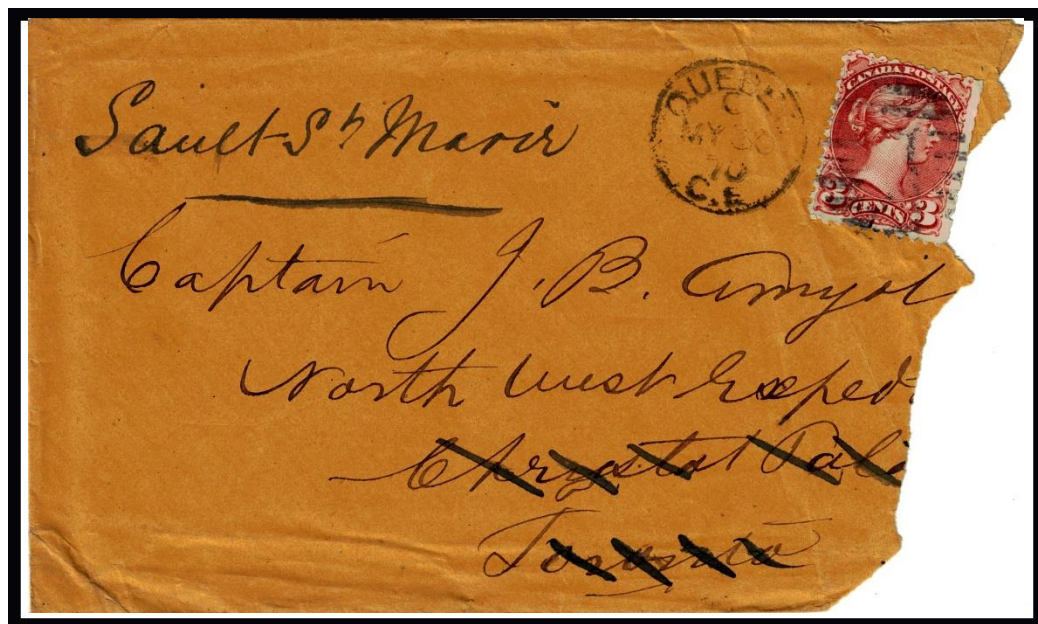 Sault Ste Marie
QUEBEC
MY 30
70
C.E
CANADA POSTAGE
3 CENTS 3
Captain J. B. Amyot
North West Exped
Chrystal Pala
Toronto